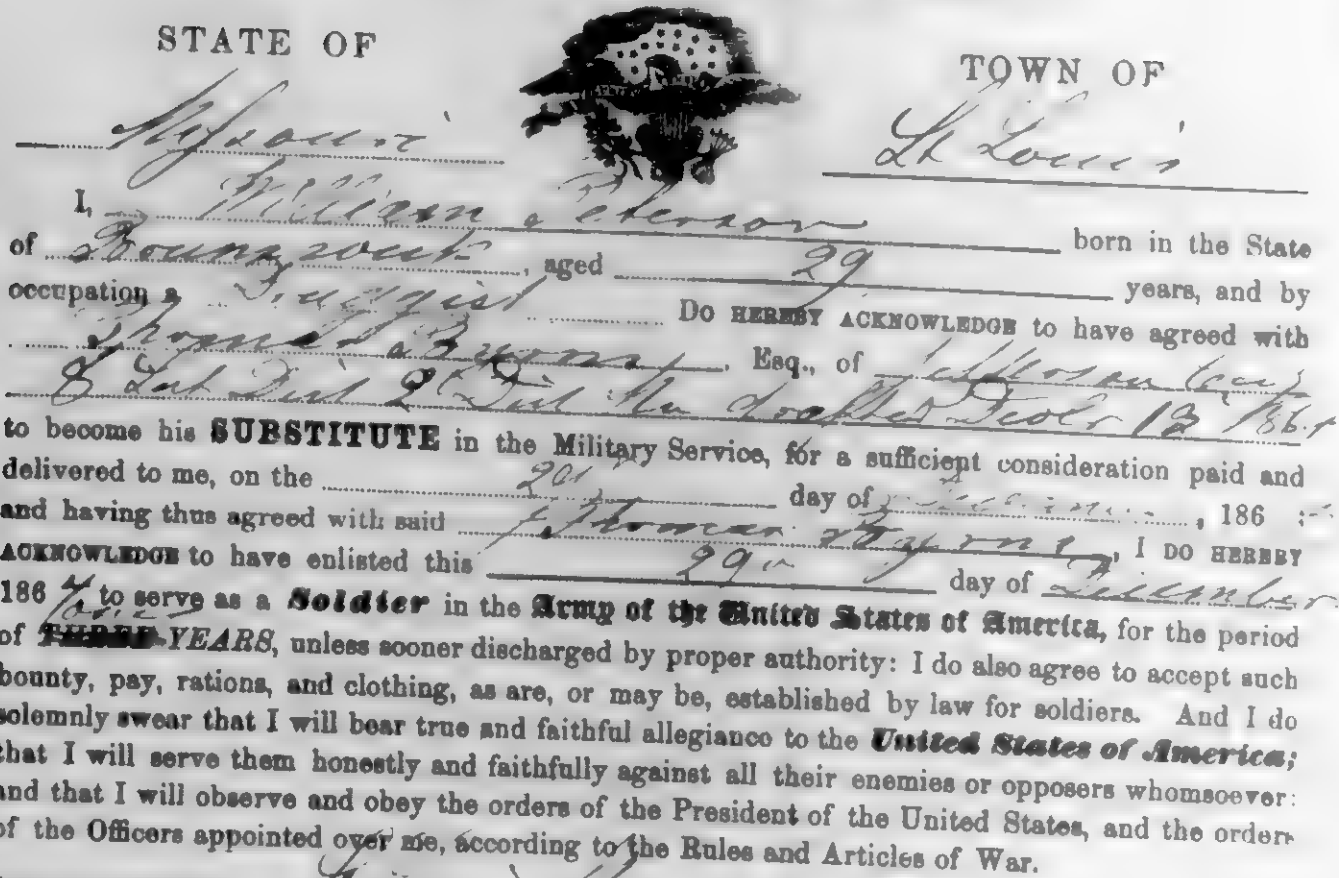 STATE OF
TOWN OF
Missouri
St Louis
I, William Peterson born in the State
of Brounzouck, aged 29 years, and by
occupation a Druggist Do HEREBY ACKNOWLEDGE to have agreed with
Thomas Byrns, Esq., of Jefferson City
8 Sub Dist 2d Dist Mo drafted 1864
to become his SUBSTITUTE in the Military Service, for a sufficient consideration paid and
delivered to me, on the day of, 186
and having thus agreed with said Thomas Byrns, I DO HEREBY
ACKNOWLEDGE to have enlisted this 29 day of December
1864, to serve as a Soldier in the Army of the United States of America, for the period
of THREE YEARS, unless sooner discharged by proper authority: I do also agree to accept such
bounty, pay, rations, and clothing, as are, or may be, established by law for soldiers. And I do
solemnly swear that I will bear true and faithful allegiance to the United States of America;
that I will serve them honestly and faithfully against all their enemies or opposers whomsoever:
and that I will observe and obey the orders of the President of the United States, and the orders
of the Officers appointed over me, according to the Rules and Articles of War.